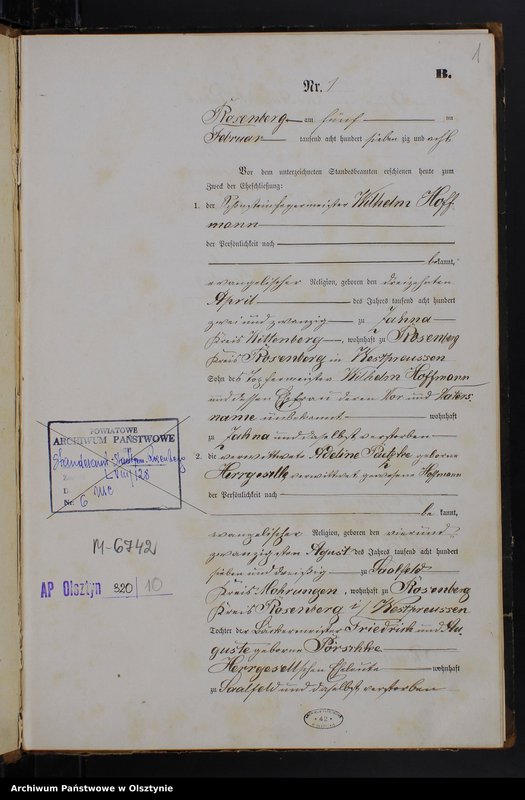 1
B.
Nr. 1
Rosenberg am fünf ten
Februar tausend acht hundert sieben zig und acht
Vor dem unterzeichneten Standesbeamten erschienen heute zum
Zweck der Eheschließung:
1. der Schornsteinfegermeister Wilhelm Hoff-
mann
der Persönlichkeit nach
bekannt,
evangelischer Religion, geboren den dreizehnten
April des Jahres tausend acht hundert
zwei und zwanzig zu Zahna
Kreis Wittenberg, wohnhaft zu Rosenberg
Kreis Rosenberg in Westpreussen
Sohn des Töpfermeister Wilhelm Hoffmann
und dessen Ehefrau deren Vor und Vaters-
name unbekannt wohnhaft
zu Zahna und daselbst verstorben
2. die verwittwete Adeline geborne
Herrgesell verwittwet gewesene Hoffmann
der Persönlichkeit nach
be kannt,
evangelischer Religion, geboren den vier und
zwanzigsten Agust des Jahres tausend acht hundert
sieben und dreißig zu Saalfeld
Kreis Mohrungen, wohnhaft zu Rosenberg
Kreis Rosenberg i/ Westpreussen
Tochter der Bäckermeister Friedrich und Au-
guste geborne Pörschke
Herrgesell'schen Eheleute wohnhaft
zu Saalfeld und daselbst verstorben
POWIATOWE
ARCHIWUM PAŃSTWOWE
Nr. 6
M-6742
AP Olsztyn 320/10
42
Archiwum Państwowe w Olsztynie